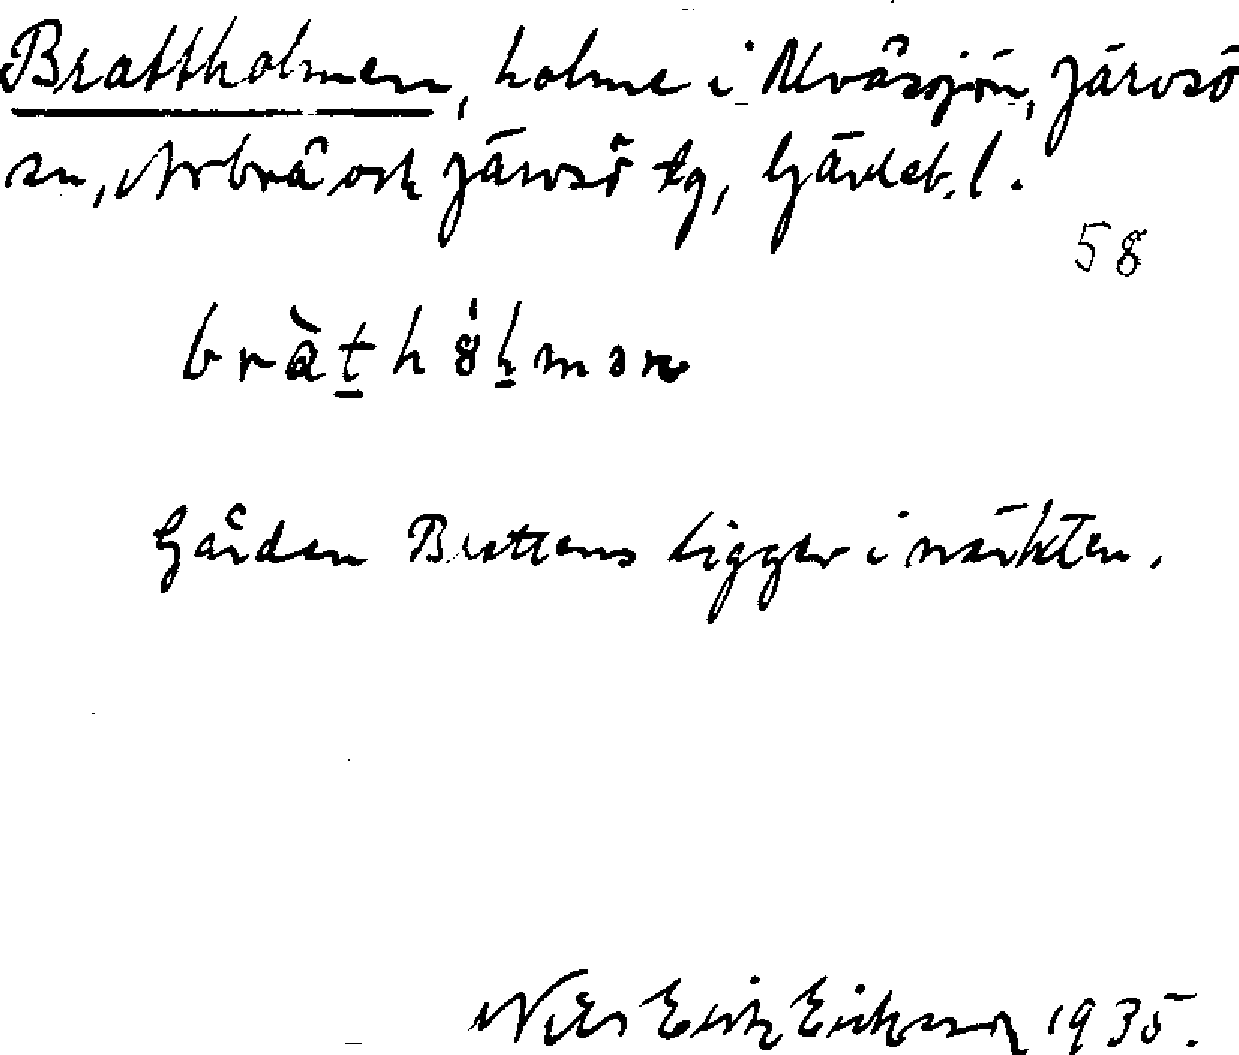 Brattholmen, holme i Kvåsjön, Järvsö
sn, Arbrå och Järvsö tg, Gävleb. l.
58
bràt hó̤lmən
Gården Brattens ligger i närheten.
Nils Erik Erikson 1935.